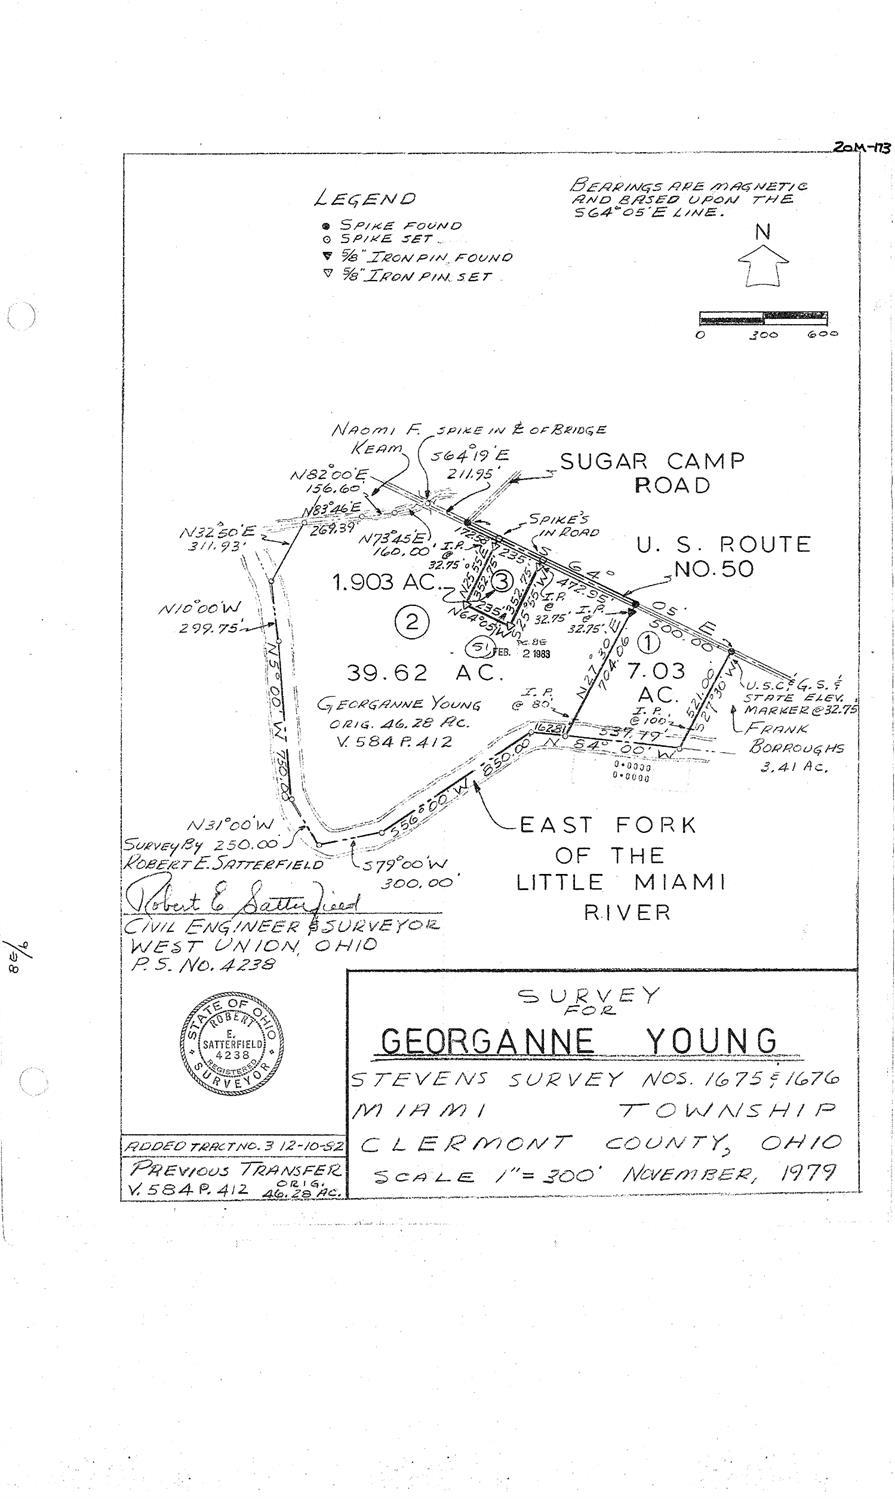 20M-173
LEGEND
SPIKE FOUND
SPIKE SET
5/8" IRON PIN FOUND
5/8" IRON PIN SET
BEARINGS ARE MAGNETIC
AND BASED UPON THE
S64°05'E LINE.
N
0 300 600
NAOMI F.
KEAM
SPIKE IN ℄ OF BRIDGE
S64°19'E
211.95'
SUGAR CAMP
ROAD
N82°00'E
156.60
N83°46'E
269.39'
N73°45'E
160.00'
N32°50'E
311.93'
SPIKE'S
IN ROAD
U. S. ROUTE
NO. 50
I.P.
@
32.75'
235'
S 64° 05' E
472.95'
500.00'
N25°55'E
352.75'
S25°55'W
352.75'
N64°05'W
235'
1.903 AC.
3
I.P.
@
32.75'
I.P.
@
32.75'
N10°00'W
299.75'
2
1
51
FEB. 2 1983
39.62 AC.
7.03
AC.
GEORGANNE YOUNG
ORIG. 46.28 AC.
V. 584 P. 412
N27°30'E
704.06
I.P.
@ 80'
I.P.
@ 100'
521.00'
S27°30'W
U.S.C. & G.S. &
STATE ELEV.
MARKER @ 32.75
FRANK
BORROUGHS
3.41 AC.
N5°00'W 750.00'
162.81
537.79'
N 54° 00' W
0·0000
0·0000
S56°00'W 850.00'
N31°00'W
250.00'
S79°00'W
300.00'
EAST FORK
OF THE
LITTLE MIAMI
RIVER
SURVEY BY
ROBERT E. SATTERFIELD
Robert E Satterfield
CIVIL ENGINEER & SURVEYOR
WEST UNION, OHIO
P. S. NO. 4238
STATE OF OHIO
ROBERT
E.
SATTERFIELD
4238
REGISTERED
SURVEYOR
SURVEY
FOR
GEORGANNE YOUNG
STEVENS SURVEY NOS. 1675 & 1676
MIAMI TOWNSHIP
CLERMONT COUNTY, OHIO
SCALE 1"=300' NOVEMBER, 1979
ADDED TRACT NO. 3 12-10-82
PREVIOUS TRANSFER
V. 584 P. 412 ORIG.
46.28 AC.